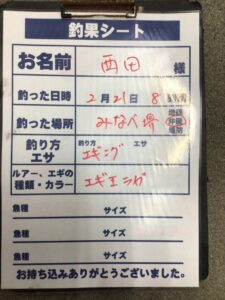 釣果シート
お名前 西田 様
釣った日時 2月21日 8
釣った場所 みなべ堺 地磯 沖磯 堤防
釣り方 エサ 釣り方 エギング エサ
ルアー、エギの種類・カラー エギ王
魚種 サイズ
魚種 サイズ
魚種 サイズ
お持ち込みありがとうございました。